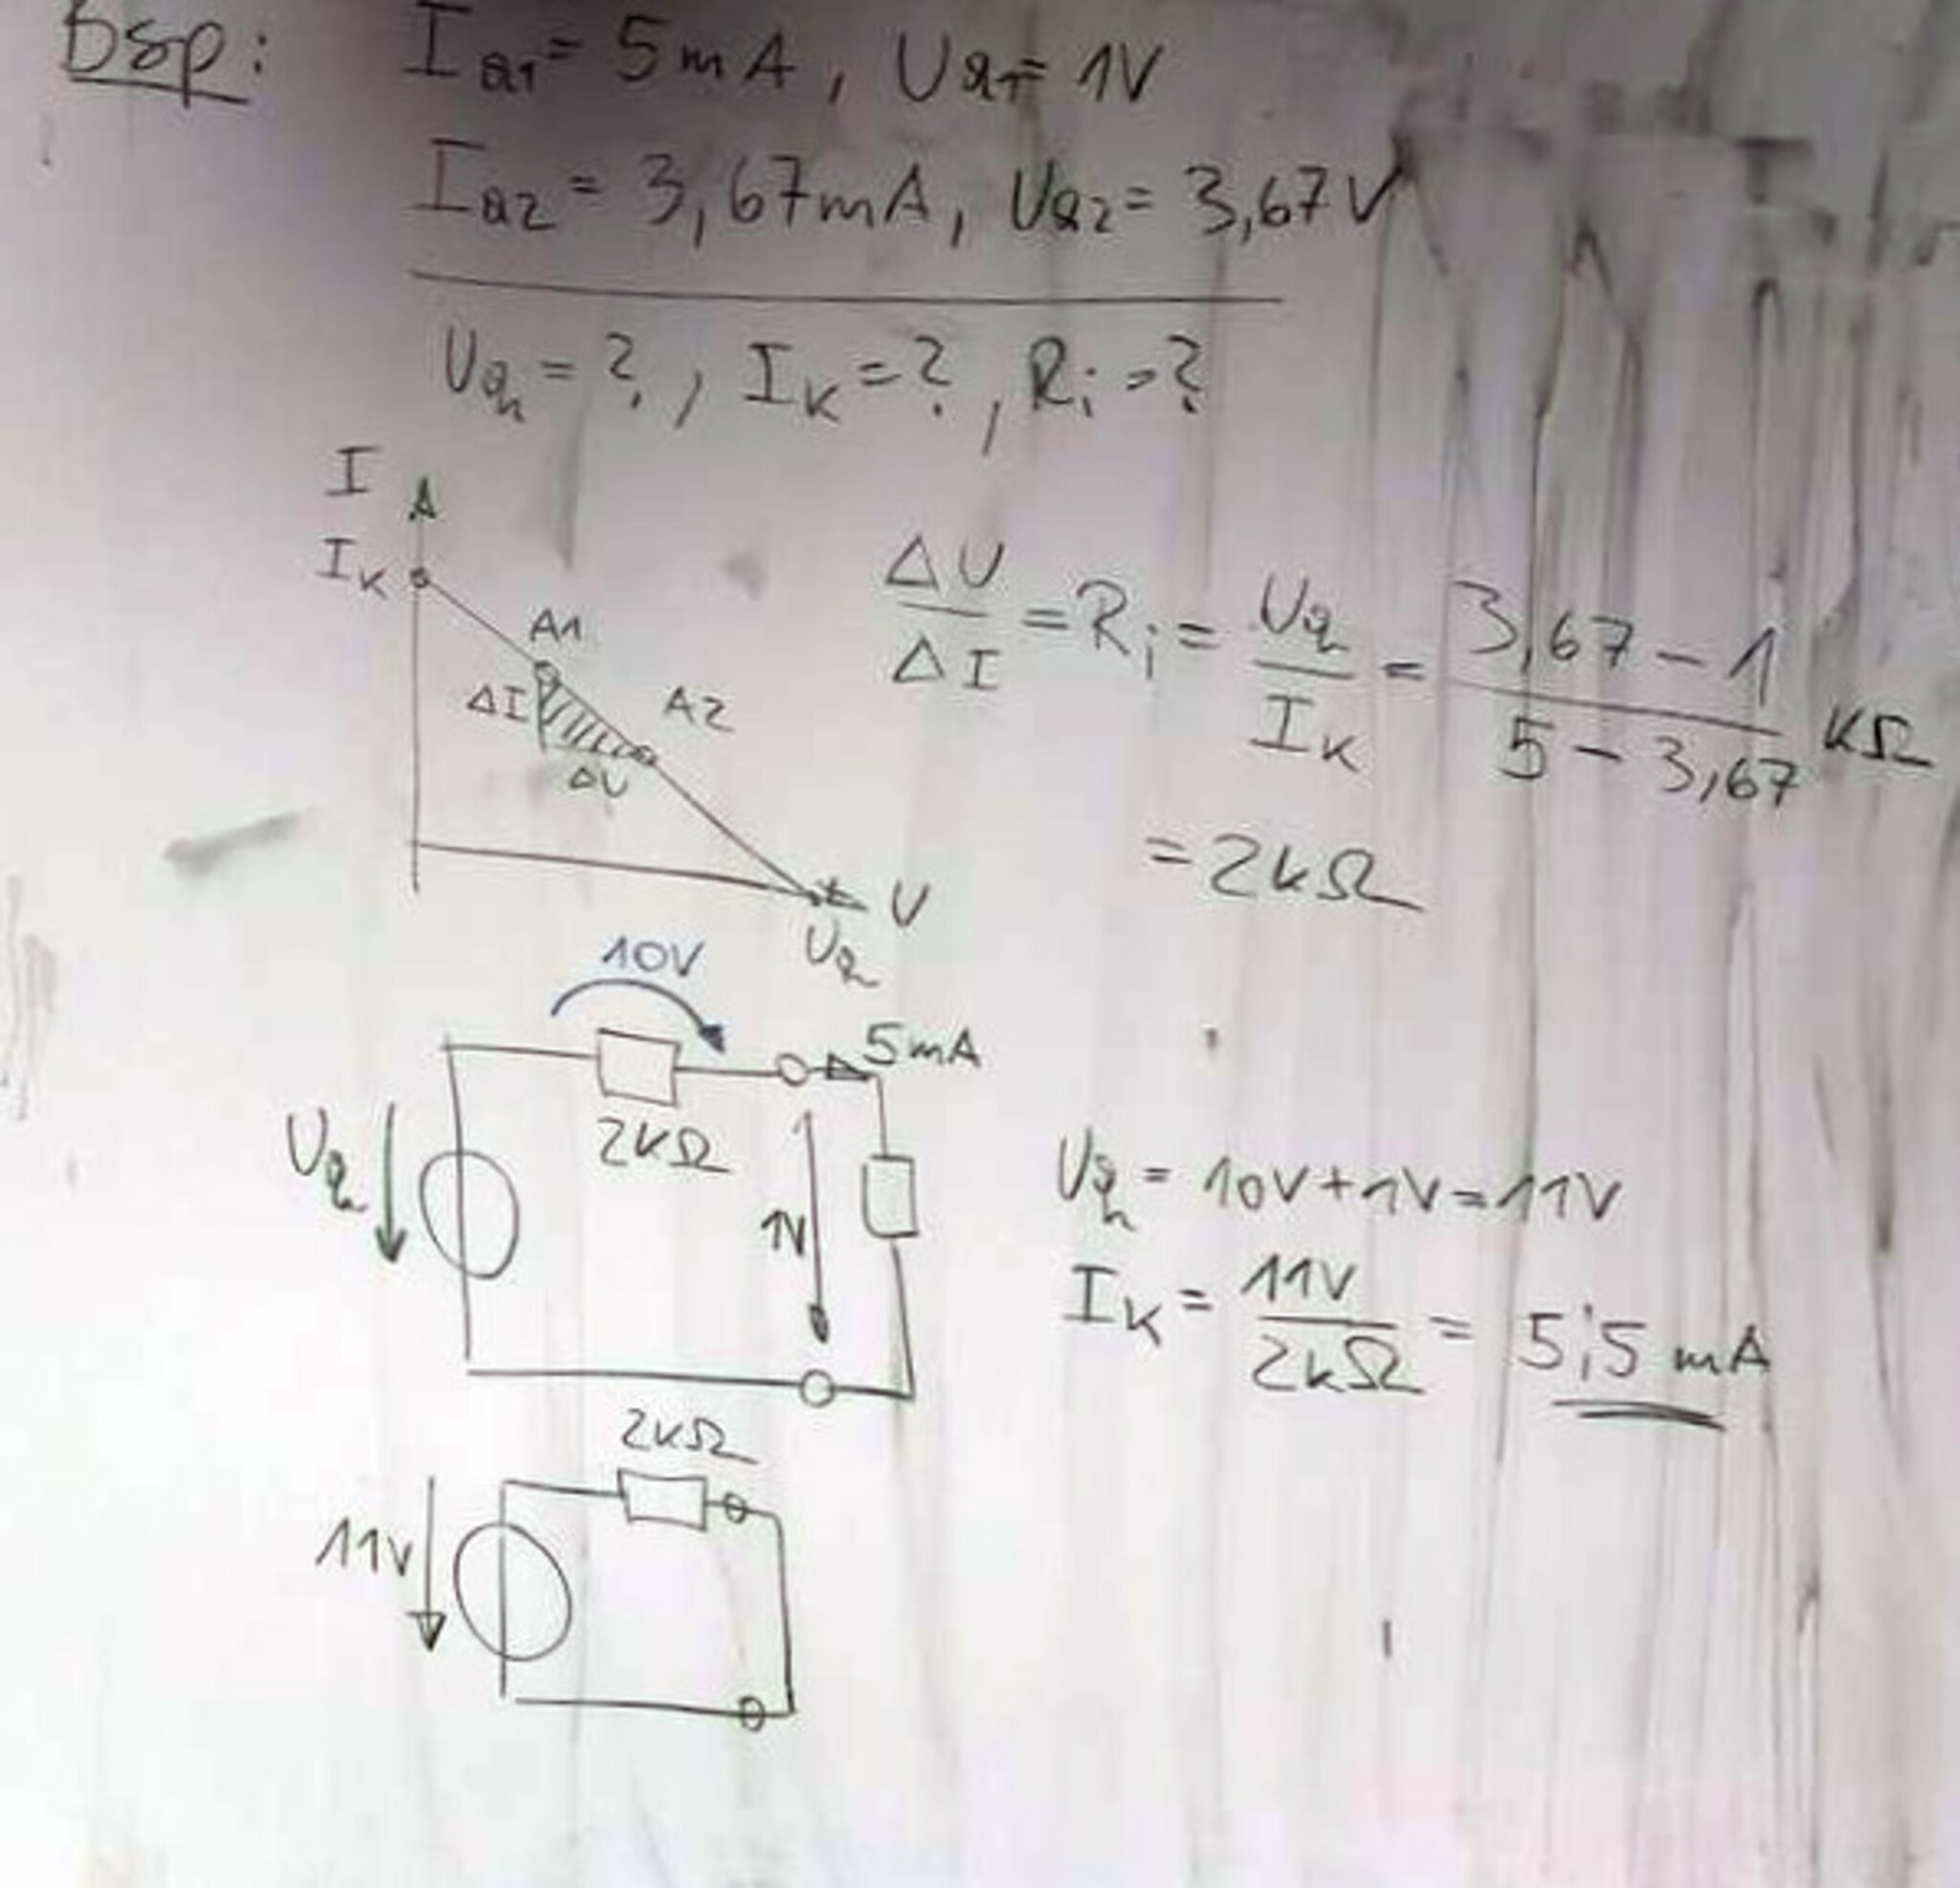 Bsp: Ia1 = 5mA, Ua1 = 1V
Ia2 = 3,67mA, Ua2 = 3,67V
Uq = ?, IK = ?, Ri = ?
I
IK
A1
A2
ΔI
ΔU
U
Uq
ΔU/ΔI = Ri = Uq/IK = (3,67 - 1)/(5 - 3,67) kΩ
= 2kΩ
10V
5mA
2kΩ
Uq
1V
Uq = 10V + 1V = 11V
IK = 11V/2kΩ = 5,5 mA
2kΩ
11V